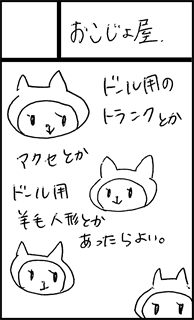 おこじょ屋.
ドール用の
トランクとか
アクセとか
ドール用
羊毛人形とか
あったらよい。